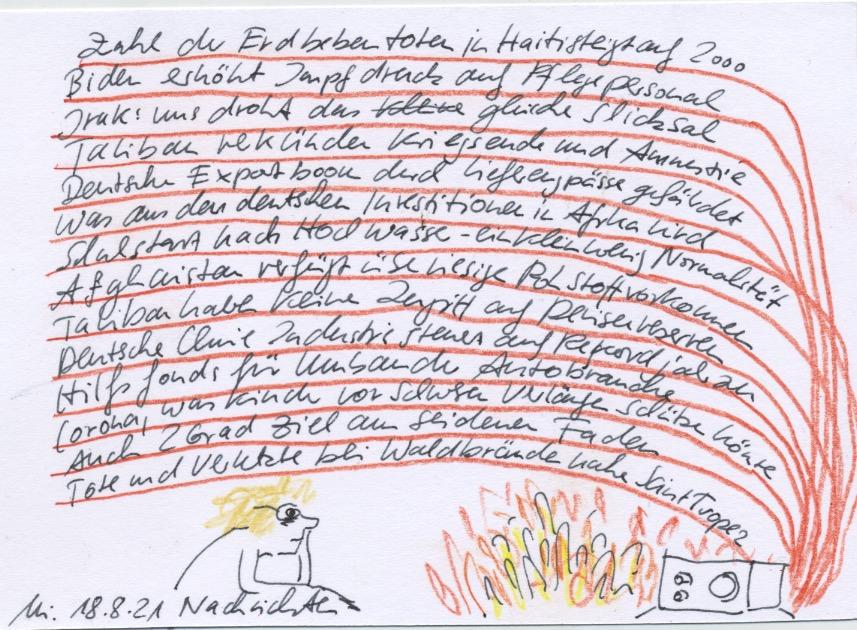 Zahl der Erdbebentoten in Haiti steigt auf 2000
Biden erhöht Impfdruck auf Pflegepersonal
Irak: uns droht das gleiche Schicksal
Taliban verkünden Kriegsende und Amnestie
Deutsche Exportboom durch Lieferengpässe gefährdet
Was aus den deutschen Investitionen in Afrika wird
Schulstart nach Hochwasser - ein klein wenig Normalität
Afghanistan verfügt über riesige Rohstoffvorkommen
Taliban haben keine Zugriff auf Devisenreserven
Deutsche Chemie Industrie steuert auf Rekordjahr zu
Hilfsfonds für Umbau der Autobranche
Corona, was Kinder vor schweren Verläufen schützen könnte
Auch 2 Grad Ziel am seidenen Faden
Tote und Verletzte bei Waldbrände nahe Saint Tropez
Mi. 18.8.21 Nachrichten